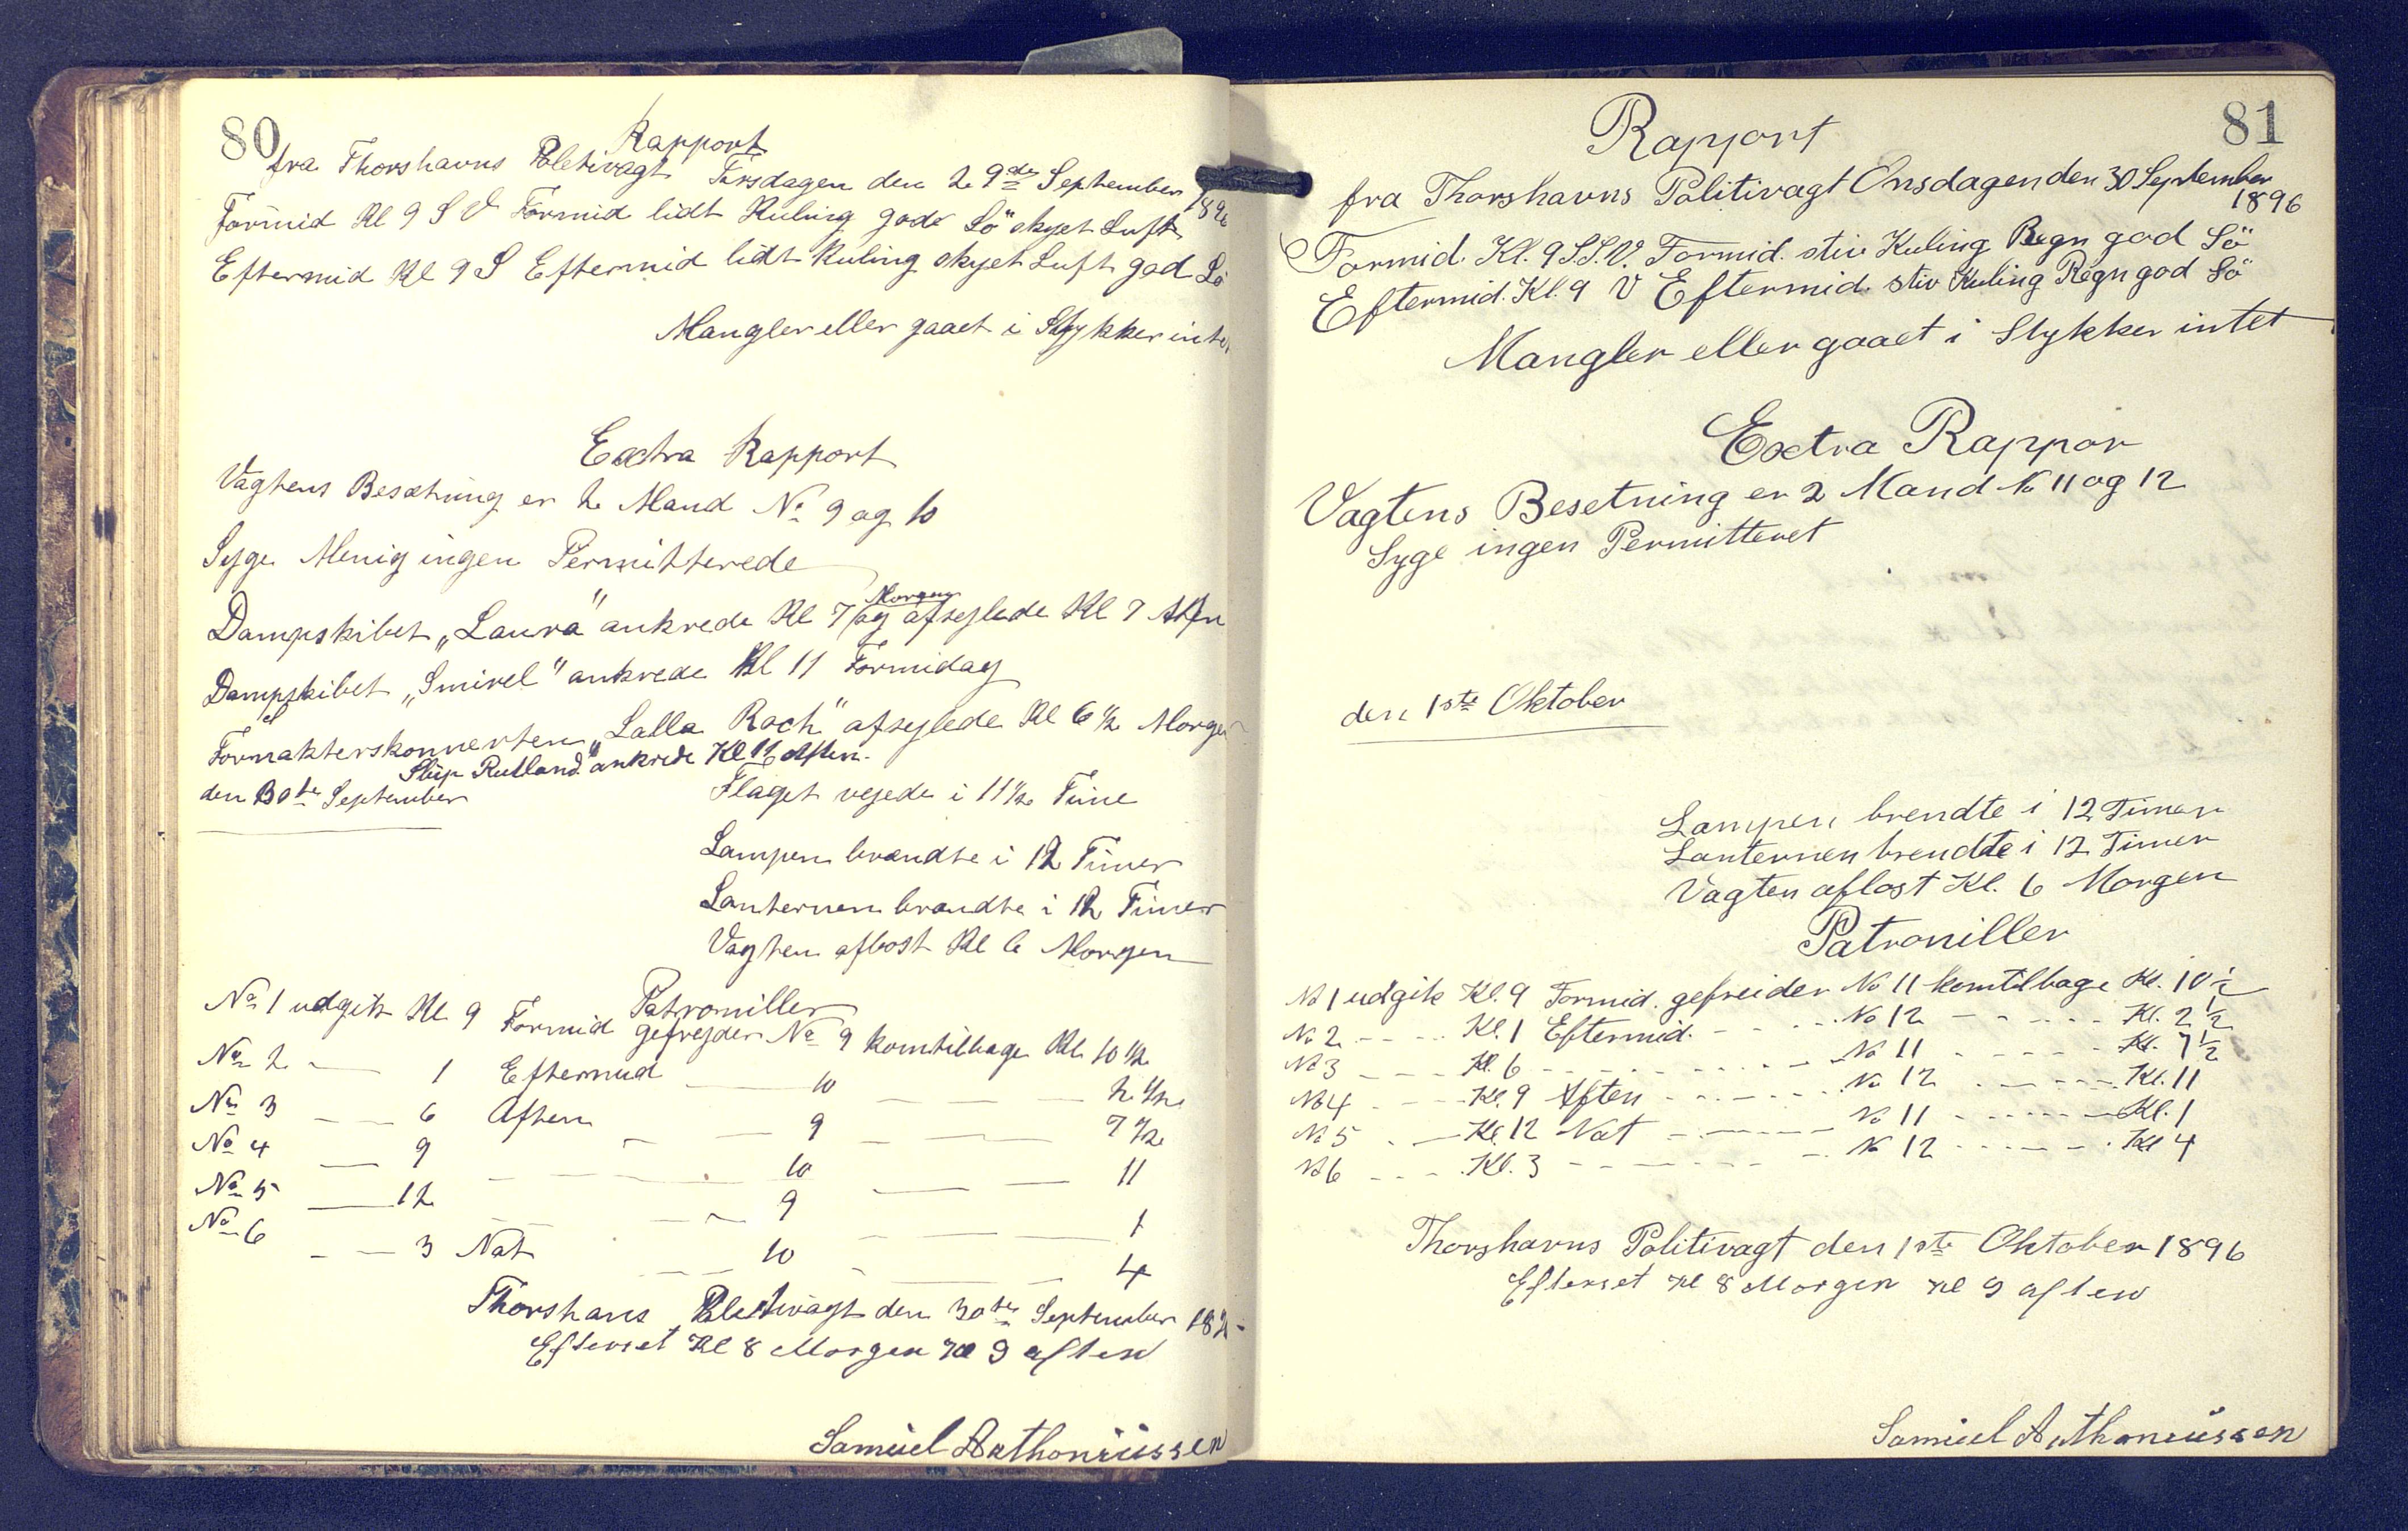 80
Rapport
fra Thorshavns Poletivagt Tirsdagen den 29de September 1896
Formid Kl 9 S V Formid lidt Kuling gode Sö skyet Luft
Eftermid Kl 9 S Eftermid lidt Kuling skyet Luft god Sö
Mangler eller gaaet i Stykker intet
Extra Rapport
Vagtens Besætning er 2 Mand No 9 og 10
Syge Menig ingen Permitterede
Dampskibet „Laura" ankrede Kl 7 Morgen og afseglede Kl 7 Aftn
Dampskibet „Smirel" ankrede Kl 11 Formidag
Formakterskonnerten „Lalla Roch" afseglede Kl 6½ Morgen
Slup Rutland" ankrede Kl 11 Aften.
den 30te September
Flaget vejede i 11½ Time
Lampen brændte i 12 Timer
Lanternen brændte i 12 Timer
Vagten aflost Kl 6 Morgen
Patromiller
No 1 udgik Kl 9 Formid gefrejder No 9 komtilbage Kl 10½
No 2 — 1 Eftermid — 10 — — — 2½
No 3 — — 6 Aften — — 9 — — — 7½
No 4 — 9 — — — 10 — — — 11
No 5 — 12 — — — 9 — — — 1
No 6 — — 3 Nat — — 10 — — — 4
Thorshavns Poletivagt den 30te September 18
Efterset Kl 8 Morgen Kl 9 aften
Samuel Anthoniussen
81
Rapport
fra Thorshavns Politivagt Onsdagen den 30 September
1896
Formid. Kl. 9 S.S.V. Formid. stiv Kuling Regn god Sö
Eftermid. Kl. 9 V Eftermid. stiv Kuling Regn god Sö
Mangler eller gaaet i Stykker intet
Extra Rappor
Vagtens Besetning er 2 Mand No 11 og 12
Syge ingen Permitteret
den 1ste Oktober
Lampen brendte i 12 Timer
Lanternen brendte i 12 Timer
Vagten aflost Kl. 6 Morgen
Patroniller
No 1 udgik Kl. 9 Formid. gefreider No 11 komtilbage Kl. 10½
No 2 - - - - Kl. 1 Eftermid. - - - - No 12 - - - - - Kl. 2½
No 3 - - - Kl. 6 - - - - - - - - No 11 - - - - - Kl. 7½
No 4 - - - Kl. 9 Aften - - - - - - No 12 - - - - - Kl. 11
No 5 - - Kl. 12 Nat - - - - - No 11 - - - - - Kl. 1
No 6 - - - Kl. 3 - - - - - - - No 12 - - - - - Kl 4
Thorshavns Politivagt den 1ste Oktober 1896
Efterset Kl 8 Morgen Kl 9 aften
Samuel Anthoniussen